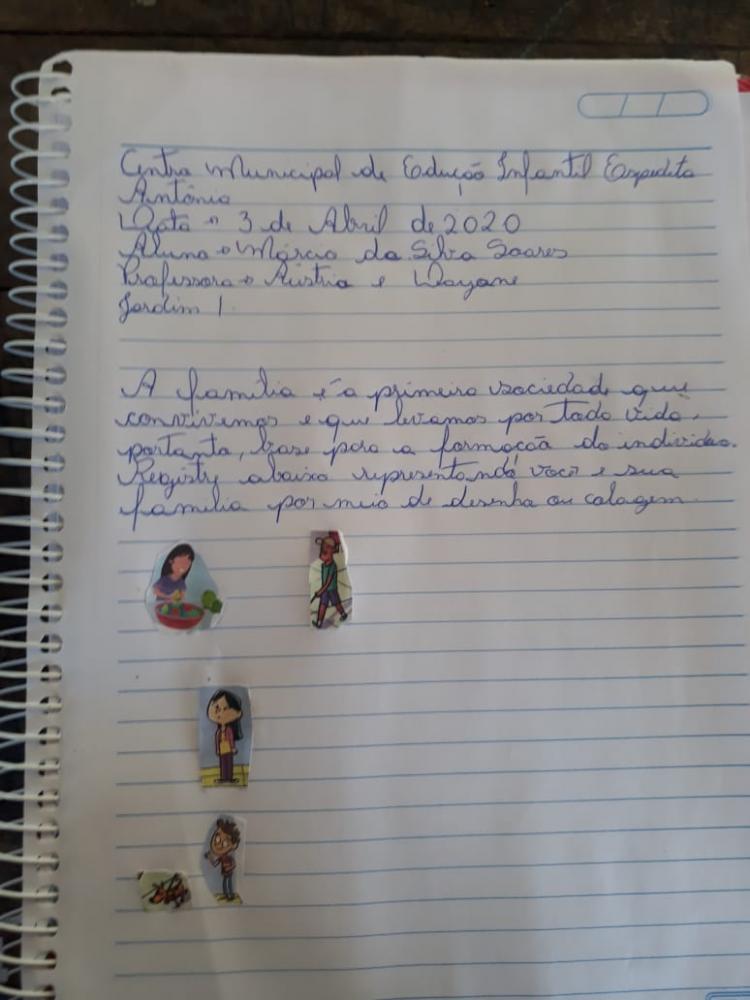 Centro Municipal de Edução Infantil Expedito
Antônio
Data: 3 de Abril de 2020
Aluno: Márcio da Silva Soares
Professora: Áustria e Dayane
Jardim 1
A família é a primeira sociedade que
convivemos e que levamos por toda vida,
portanto, base para a formação do individuo.
Registre abaixo representando você e sua
família por meio de desenho ou colagem.